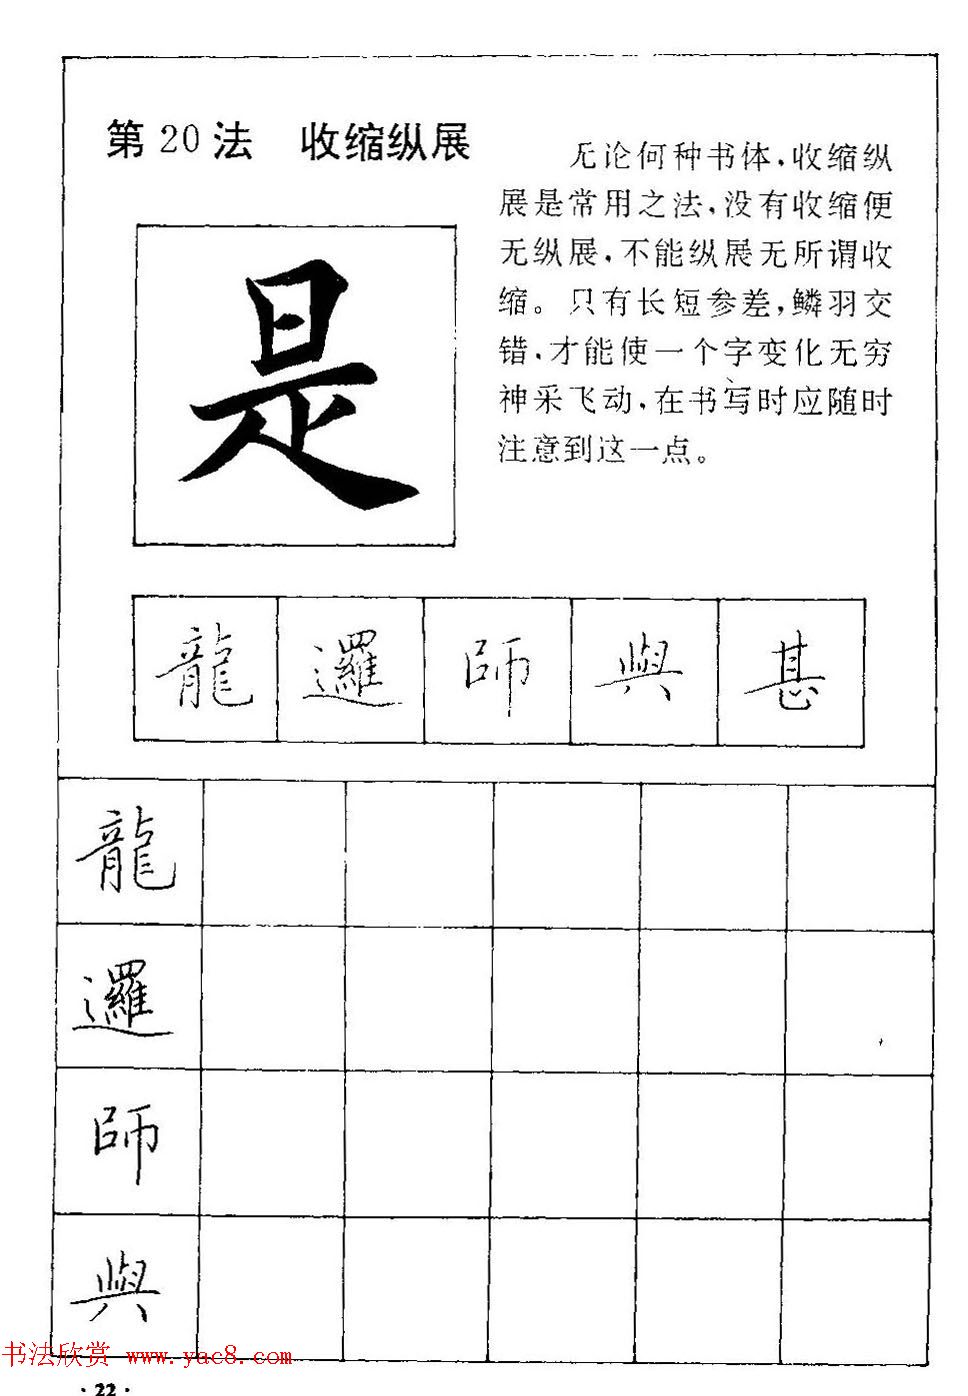 第20法 收缩纵展
无论何种书体,收缩纵
展是常用之法,没有收缩便
无纵展,不能纵展无所谓收
缩。只有长短参差,鳞羽交
错,才能使一个字变化无穷
神采飞动,在书写时应随时
注意到这一点。
是
龍 邏 師 與 甚
龍
邏
師
與
书法欣赏 www.yac8.com
·22·